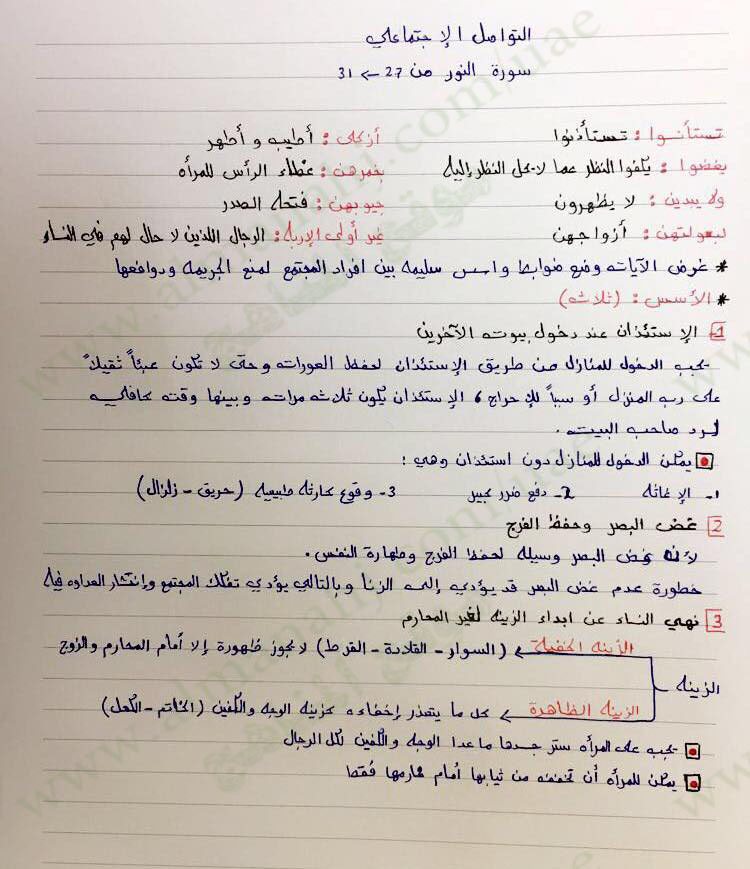 التواصل الإجتماعلي
سورة النور من 27 ← 31
تستأنسوا : تستأذنوا أزكى : أطيب و أطهر
يغضوا : يكفوا النظر عما لا يحل النظر إليه بخمرهن : غطاء الرأس للمرأه
ولا يبدين : لا يظهرون جيوبهن : فتحة الصدر
لبعولتهن : أزواجهن غير أولى الإربه : الرجال اللذين لا حال لهم في النساء
* غرض الآيات وضع ضوابط واسس سليمه بين افراد المجتمع لمنع الجريمه ودوافعها
* الأسس : (ثلاثه)
1 الإستئذان عند دخول بيوت الآخرين
يجب الدخول للمنازل من طريق الإستئذان لحفظ العورات وحتى لا تكون عبئاً ثقيلاً
على رب المنزل أو سبباً للإحراج ، الإستئذان يكون ثلاث مرات وبينها وقت كافي
لرد صاحب البيت .
يمكن الدخول للمنازل دون استئذان وهي :
1- الإغاثه 2- دفع ضرر كبير 3- وقوع كارثه طبيعيه (حريق - زلزال)
2 غض البصر وحفظ الفرج
لأنه غض البصر وسيله لحفظ الفرج وطهارة النفس .
خطورة عدم غض البصر قد يؤدي إلى الزنا وبالتالي يؤدي تفكك المجتمع وإنتشار العداوه فيه
3 نهي النساء عن ابداء الزينه لغير المحارم
الزينه
الزينه الخفية ← (السوار - القلادة - القرط) لا يجوز ظهورة إلا أمام المحارم والزوج
الزينه الظاهرة ← كل ما يتعذر إخفاءه كزينه الوجه والكفين (الخاتم - الكحل)
يجب على المرأه ستر جسدها ما عدا الوجه والكفين لكل الرجال
يمكن للمرأه أن تخفف من ثيابها أمام محارمها فقط
www.almanahj.com/uae
موقع المناهج